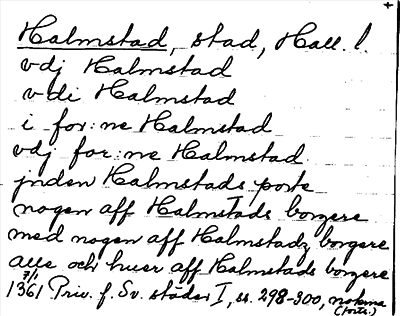 Halmstad, stad, Hall. l.
vdj Halmstad
vdi Halmstad
i for:ne Halmstad
vdj for:ne Halmstad
jnden Halmstads porte
nogen aff Halmstads borgere
med nogen aff Halmstadz borgere
alle och huer aff Halmstads borgere
7/1 1361 Priv. f. Sv. städer I, ss. 298-300, nokma
(forts.)